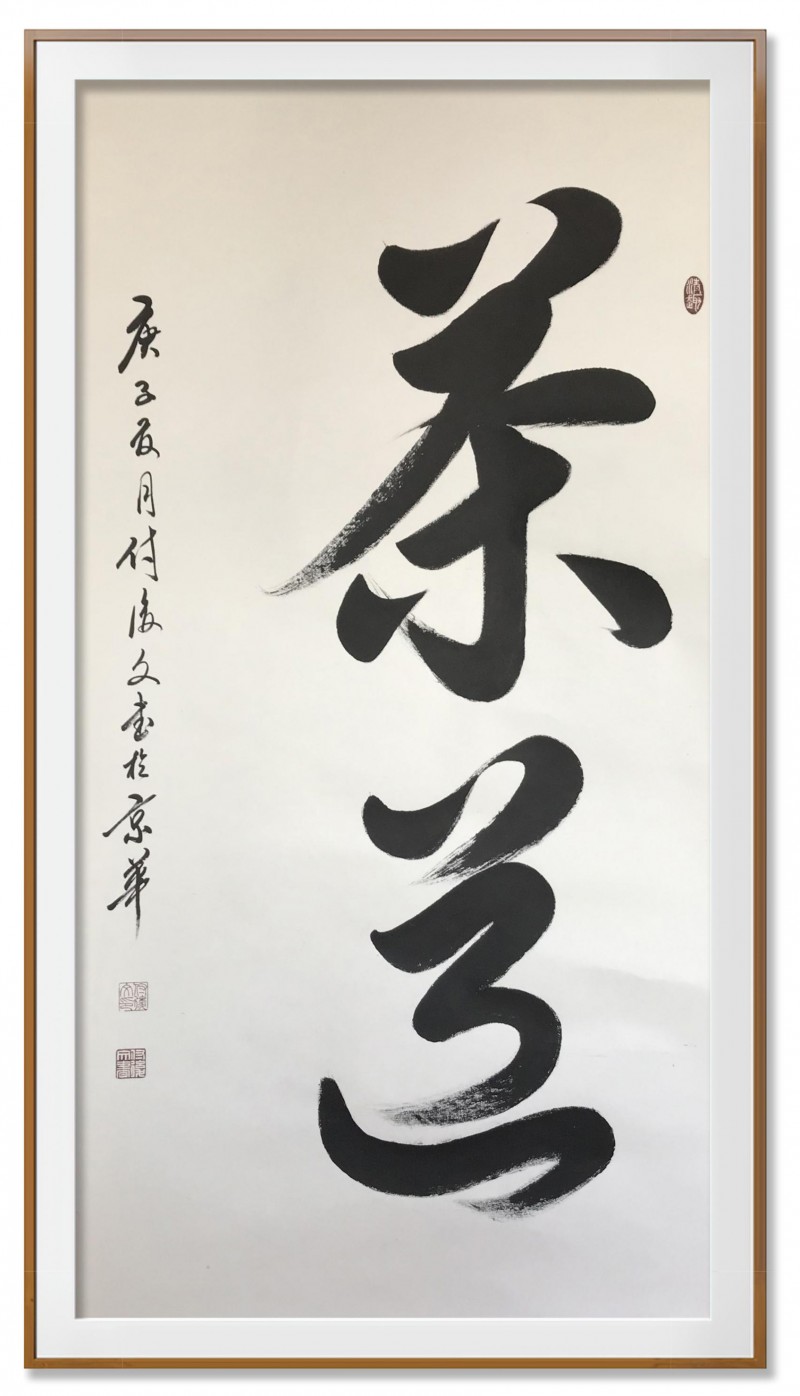 茶道
庚子夏月付文書於京華